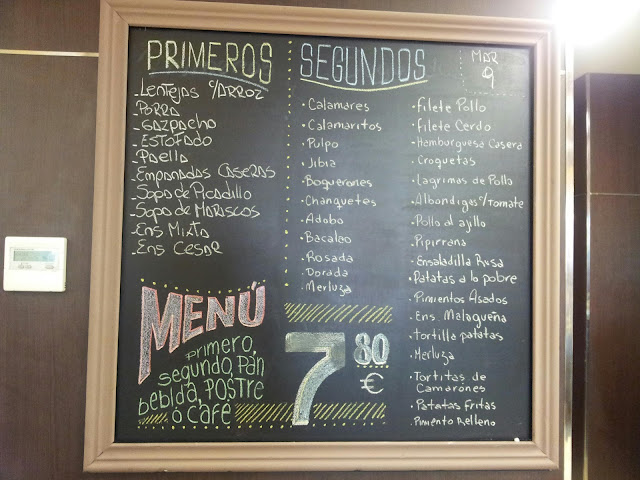 PRIMEROS
- Lentejas c/ARROZ
- PORRA
- GAZPACHO
- ESTOFADO
- Paella
- Empanadas Caseras
- Sopa de Picadillo
- Sopa de Mariscos
- Ens Mixta
- Ens Cesar
SEGUNDOS
MAR
9
- Calamares
- Calamaritos
- Pulpo
- Jibia
- Boquerones
- Chanquetes
- Adobo
- Bacalao
- Rosada
- Dorada
- Merluza
- Filete Pollo
- Filete Cerdo
- Hamburguesa Casera
- Croquetas
- Lagrimas de Pollo
- Albondigas c/Tomate
- Pollo al ajillo
- Pipirrana
- Ensaladilla Rusa
- Patatas a lo pobre
- Pimientos Asados
- Ens. Malagueña
- Tortilla patatas
- Merluza
- Tortitas de
Camarones
- Patatas Fritas
- Pimiento Relleno
MENÚ
primero,
segundo, pan
bebida, POSTRE
ó CAFÉ
7 80
€